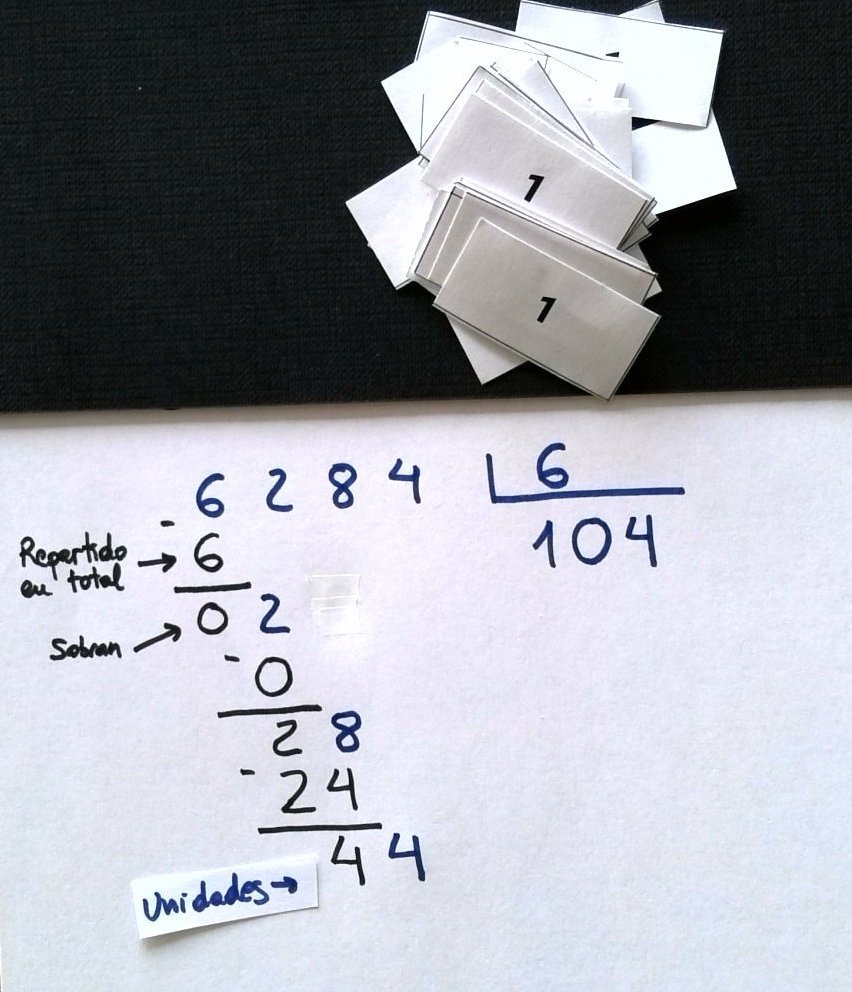 1
1
6 2 8 4 6
- 104
Repartido → 6
en total
0 2
Sobran →
- 0
2 8
- 24
4 4
Unidades →